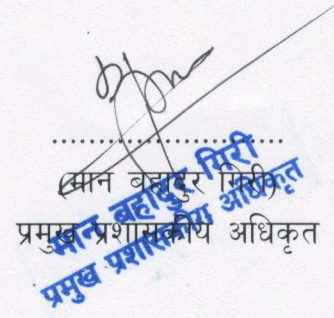 ....................................
(मान बहादुर गिरी)
प्रमुख प्रशासकीय अधिकृत
मान बहादुर गिरी
प्रमुख प्रशासकीय अधिकृत